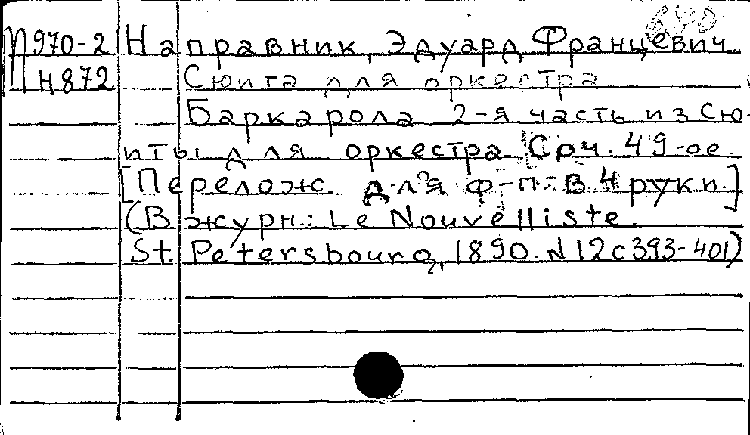 П970-2 Направник, Эдуард Францевич
Н872 Сюита для оркестра
Баркарола 2-я часть из Сю-
иты для оркестра Соч. 49-ое
[Перелож. для ф-п. в 4 руки]
(В журн.: Le Nouvelliste.
St. Petersbourg, 1890. N 12 с 393-401)